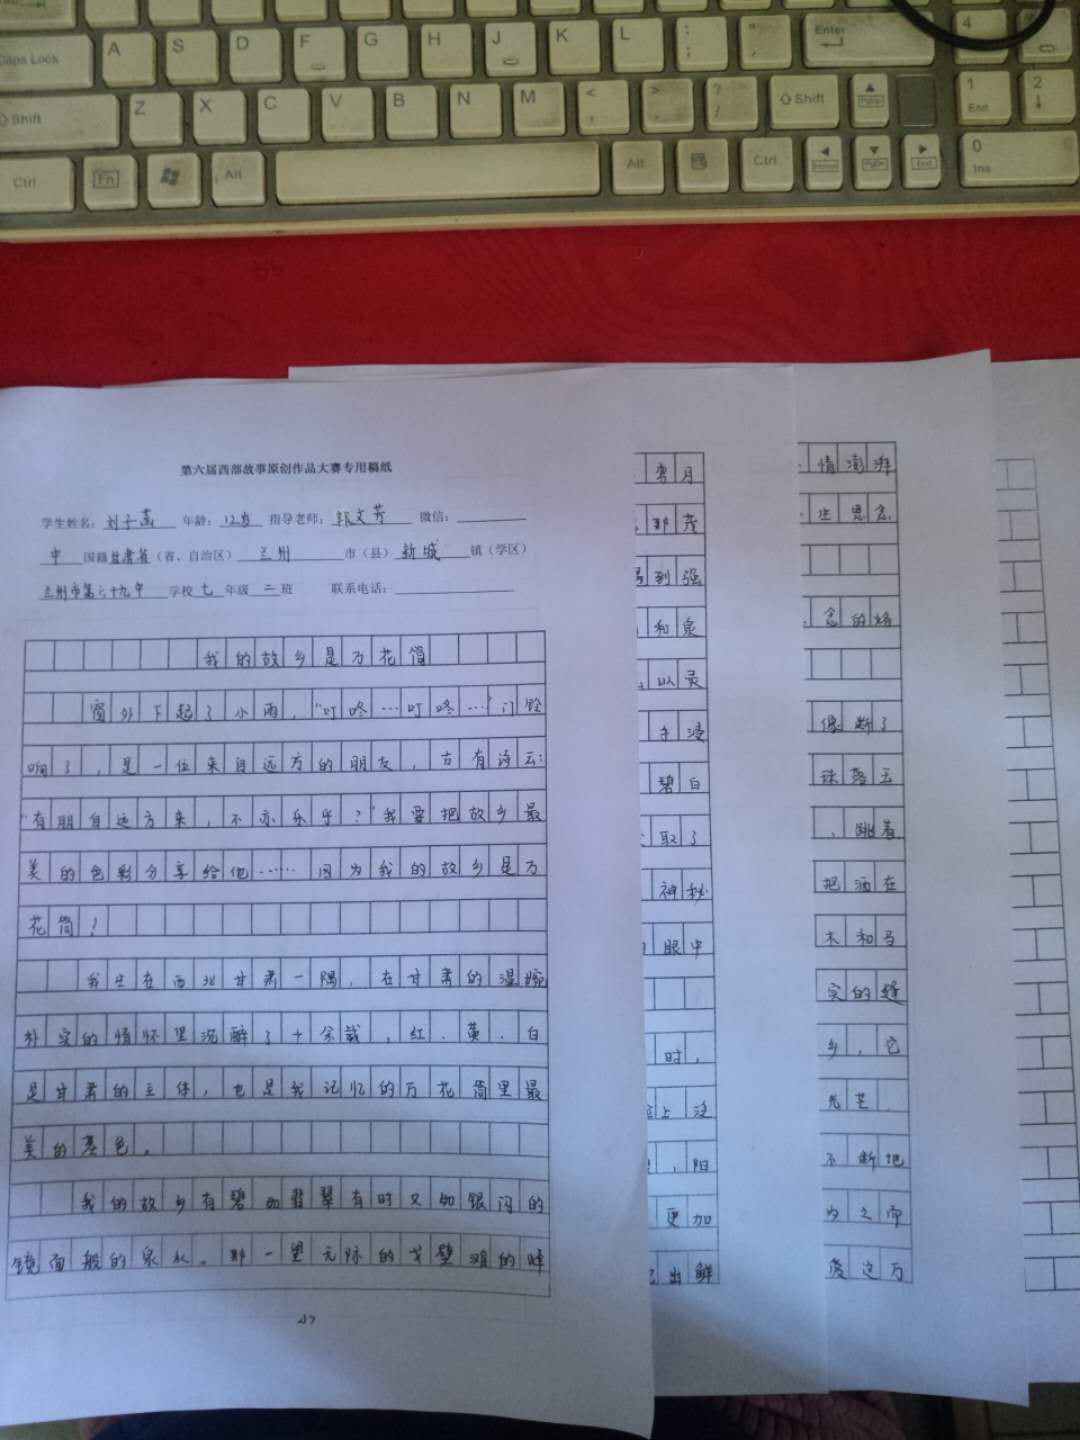 Caps Lock A S D F G H J K L : ; " ' Enter 4
Shift Z X C V B N M < , > . ? / Shift PgUp 1 End 2
Ctrl Fn Alt Alt Ctrl Home PgDn End 0 Ins
第六届西部故事原创作品大赛专用稿纸
学生姓名：刘子菡 年龄：12岁 指导老师：郭文芳 微信：
中 国籍 甘肃省（省、自治区） 兰州 市（县） 新城 镇（学区）
兰州市第六十九中 学校 七 年级 二 班 联系电话：
我的故乡是万花筒
窗外下起了小雨，“叮咚…叮咚…”门铃
响了，是一位来自远方的朋友，古有诗云：
“有朋自远方来，不亦乐乎？”我要把故乡最
美的色彩分享给他……因为我的故乡是万
花筒！
我生在西北甘肃一隅，在甘肃的温婉
朴实的情怀里沉醉了十余载，红、黄、白
是甘肃的主体，也是我记忆的万花筒里最
美的亮色。
我的故乡有碧如翡翠有时又如银闪的
镜面般的泉水。那一望无际的戈壁滩的蜂
弯月
那茂
到强
和泉
以灵
手浸
碧白
取了
神秘
眼中
时，
上泛
，阳
更加
出鲜
情澎湃
思念
念的烙
像断了
珠落玉
，跳着
把酒在
木和马
实的缝
乡，它
光芒．
不断地
为之而
度这万